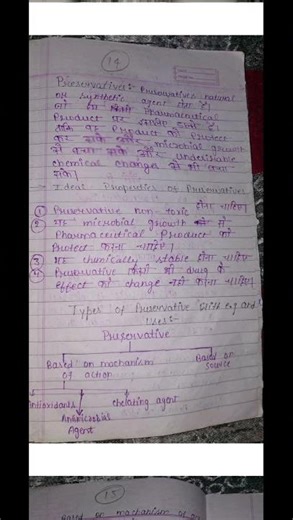 14
Preservatives:- Preservatives natural
or synthetic agent होता है।
जो कि किसी Pharmaceutical
Product पर
Product को Protect
कर सके और microbial growth
से बचा सके और undesirable
chemical change से भी बचा
सके।
→ Ideal Properties of Preservatives
① Preservative non-toxic होना चाहिए।
② यह microbial growth से
Pharmaceutical Product को
Protect करना चाहिए।
③ यह chemically stable होना चाहिए
④ Preservative किसी भी drug के
effect को change नही करना चाहिए।
Types of Preservative with e.g and
uses:-
Preservative
Based on mechanism of action
Based on source
Antioxidants
Antimicrobial Agent
chelating agent
15
Based on mechanism of